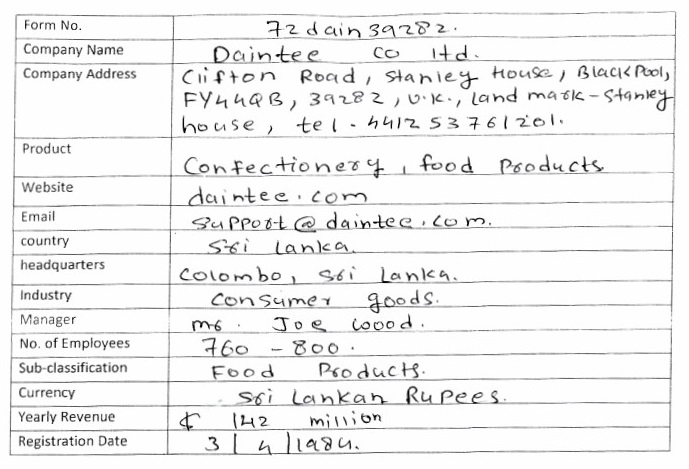 Form No. 72dain39282.
Company Name Daintee co ltd.
Company Address Clifton Road, Stanley House, BlackPool,
FY44QB, 39282, U.K., land mark-Stanley
house, tel-441253761201.
Product Confectionery, food Products
Website daintee.com
Email support@daintee.com.
country Sri lanka.
headquarters Colombo, Sri Lanka.
Industry Consumer goods.
Manager mr. Joe Wood.
No. of Employees 760 - 800.
Sub-classification Food Products.
Currency Sri Lankan Rupees.
Yearly Revenue 142 million
Registration Date 3/4/1984.